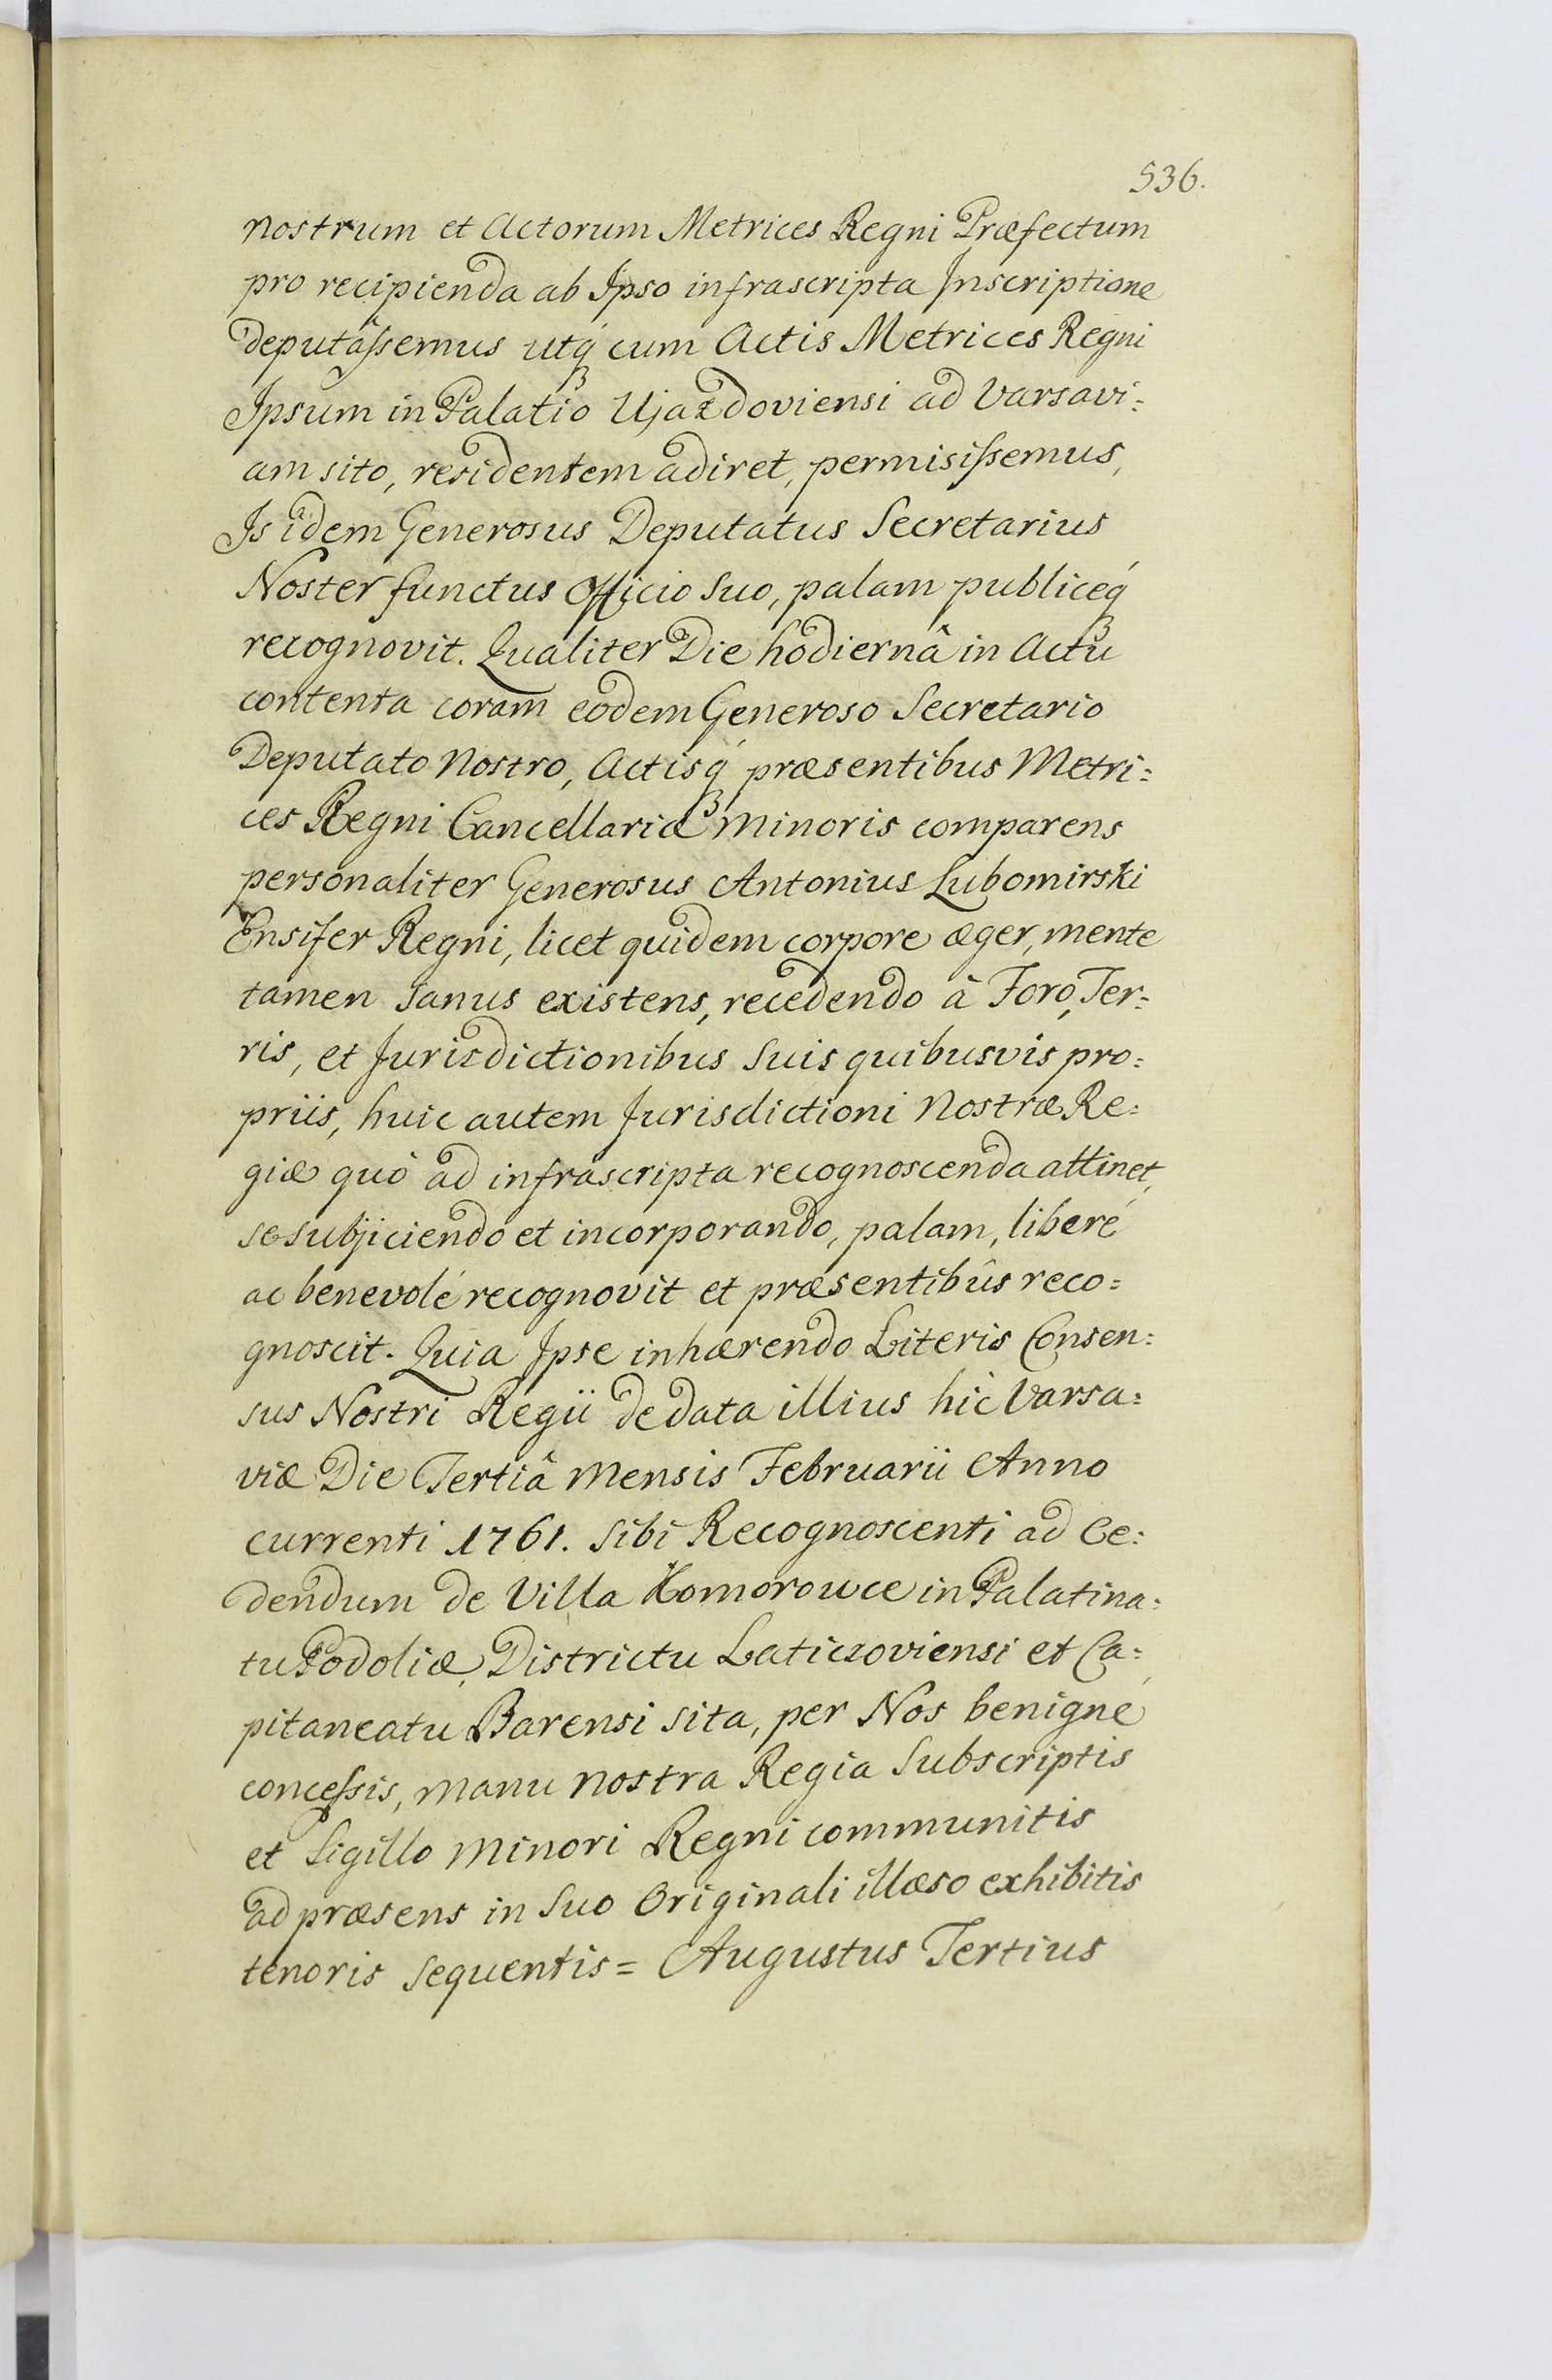 536.
nostrum et Actorum Metrices Regni Præfectum
pro recipienda ab Ipso infrascripta Inscriptione
deputâssemus utq́ cum Actis Metrices Regni
Ipsum in Palatio Ujazdoviensi ad Varsavi=
am sito, residentem adiret, permisissemus,
Is idem Generosus Deputatus Secretarius
Noster functus Officio suo, palam publiceq́
recognovit. Qualiter Die hodiernâ in Actu
contenta coram eodem Generoso Secretario
Deputato Nostro, Actisq́ præsentibus Metri=
ces Regni Cancellariæ Minoris comparens
personaliter Generosus Antonius Lubomirski
Ensifer Regni, licet quidem corpore æger, mente
tamen sanus existens, recedendo â Foro, Ter=
ris, et Jurisdictionibus suis quibusvis pro=
priis, huic autem Jurisdictioni Nostræ Re=
giæ quò ad infrascripta recognoscenda attinet,
se subjiciendo et incorporando, palam, liberé
ac benevolé recognovit et præsentibus reco=
gnoscit. Quia Ipse inhærendo Literis Consen=
sus Nostri Regii de data illius hic Varsa=
viæ Die Tertiâ Mensis Februarii Anno
currenti 1761. sibi Recognoscenti ad Ce=
dendum de Villa Komorowce in Palatina=
tu Podoliæ, Districtu Laticzoviensi et Ca=
pitaneatu Barensi sita, per Nos benigné
concessis, manu nostra Regia subscriptis
et Sigillo Minori Regni communitis
ad præsens in suo Originali illæso exhibitis
tenoris sequentis = Augustus Tertius